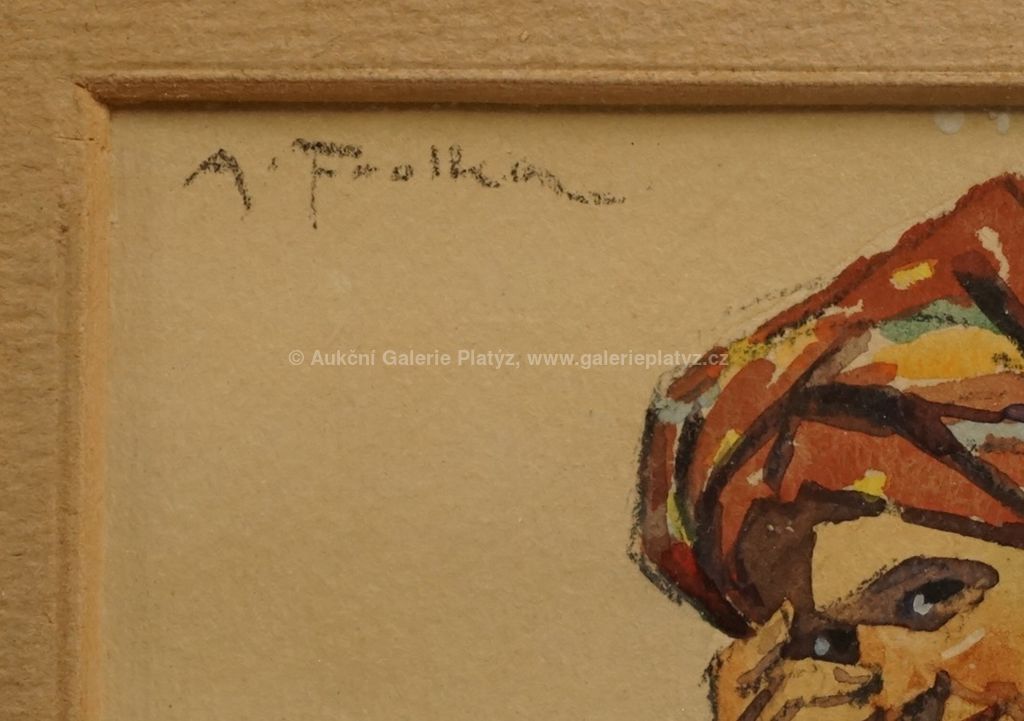 A. Frolka
© Aukční Galerie Platýz, www.galerieplatyz.cz